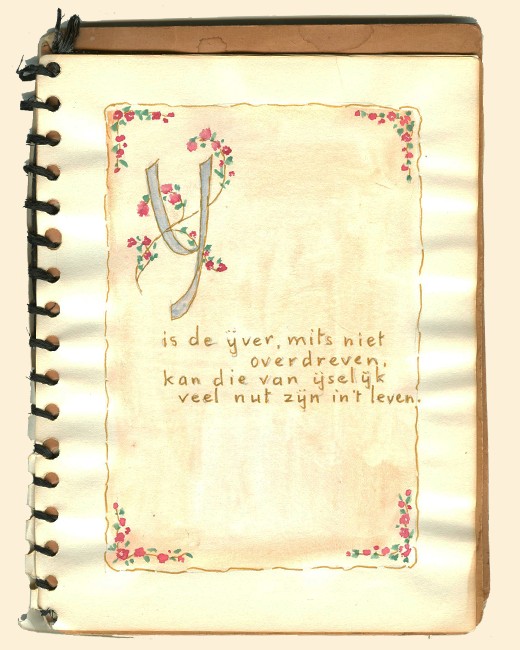 Y
is de ÿver, mits niet
overdreven,
kan die van ÿselÿk
veel nut zÿn in't leven.